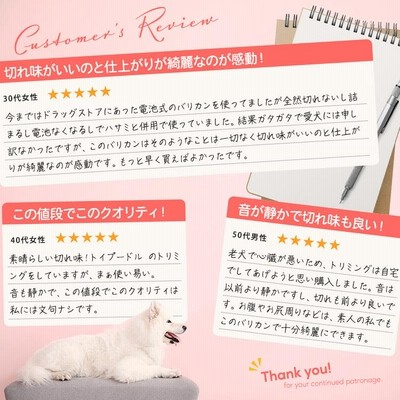 Customer's Review
切れ味がいいのと仕上がりが綺麗なのが感動！
30代女性 ★★★★★
今まではドラッグストアにあった電池式のバリカンを使ってましたが全然切れないし詰
まるし電池なくなるしでハサミと併用で使っていました。結果ガタガタで愛犬には申し
訳なかったですが、このバリカンはそのようなことは一切なく切れ味がいいのと仕上が
りが綺麗なのが感動です。もっと早く買えばよかったです。
この値段でこのクオリティ！
40代女性 ★★★★★
素晴らしい切れ味！トイプードル のトリミ
ングをしていますが、まぁ使い易い。
音も静かで、この値段でこのクオリティは
私には文句ナシです。
音が静かで切れ味も良い！
50代男性 ★★★★★
老犬で心臓が悪いため、トリミングは自宅
でしてあげようと思い購入しました。音は
以前より静かですし、切れも前より良いで
す。お腹やお尻周りなどは、素人の私でも
このバリカンで十分綺麗にできます。
Thank you!
for your continued patronage.